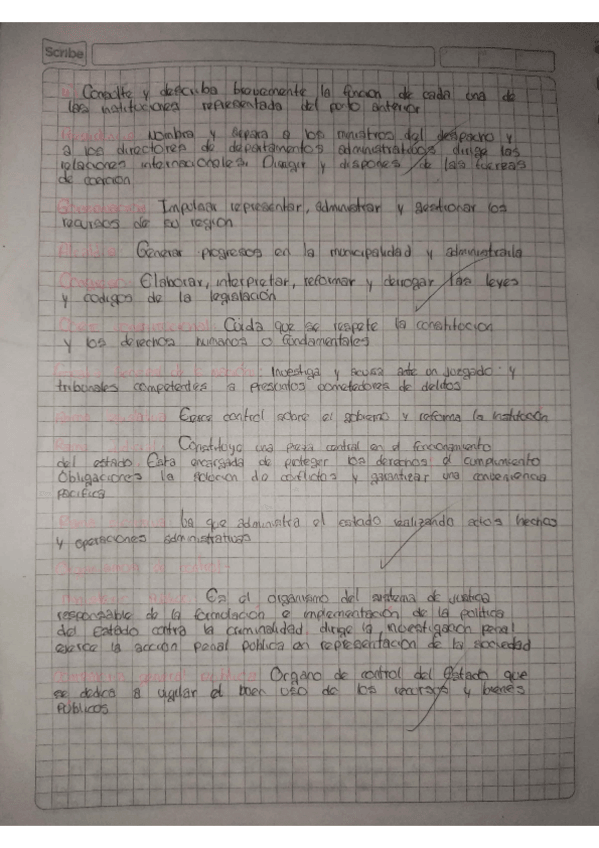 Scribe
Consulte y describa brevemente la funcion de cada una de
las instituciones representada del punto anterior
Nombra y separa a los ministros del despacho y
a los directores de departamentos administrativos dirige las
relaciones internacionales. Dirigir y dispones de las fuerzas
de coercion
Impulsar representar, administrar y gestionar los
recursos de su region
Alcaldia: Generar progresos en la municipalidad y administrarla
Congreso: Elaborar, interpretar, reformar y derogar las leyes
y codigos de la legislación
Corte constitucional: Cuida que se respete la constitucion
y los derechos humanos o fundamentales
Investiga y acusa ante un juzgado y
tribunales competentes a presuntos cometedores de delitos
Rama legislativa Ejerce control sobre el gobierno y reforma la institución
Rama Judicial: Constituye una pieza central en el funcionamiento
del estado Esta encargada de proteger los derechos el cumplimiento
Obligaciones la solucion de conflictos y garantizar una convivencia
pacifica
La que administra el estado realizando actos hechos
y operaciones administrativas
Es el organismo del sistema de justicia
responsable de la formulacion e implementación de la politica
del Estado contra la criminalidad, dirige la investigación penal
ejerce la acción penal publica en representación de la sociedad
Organo de control del Estado que
se dedica a vigilar el buen uso de los recursos y bienes
Publicos